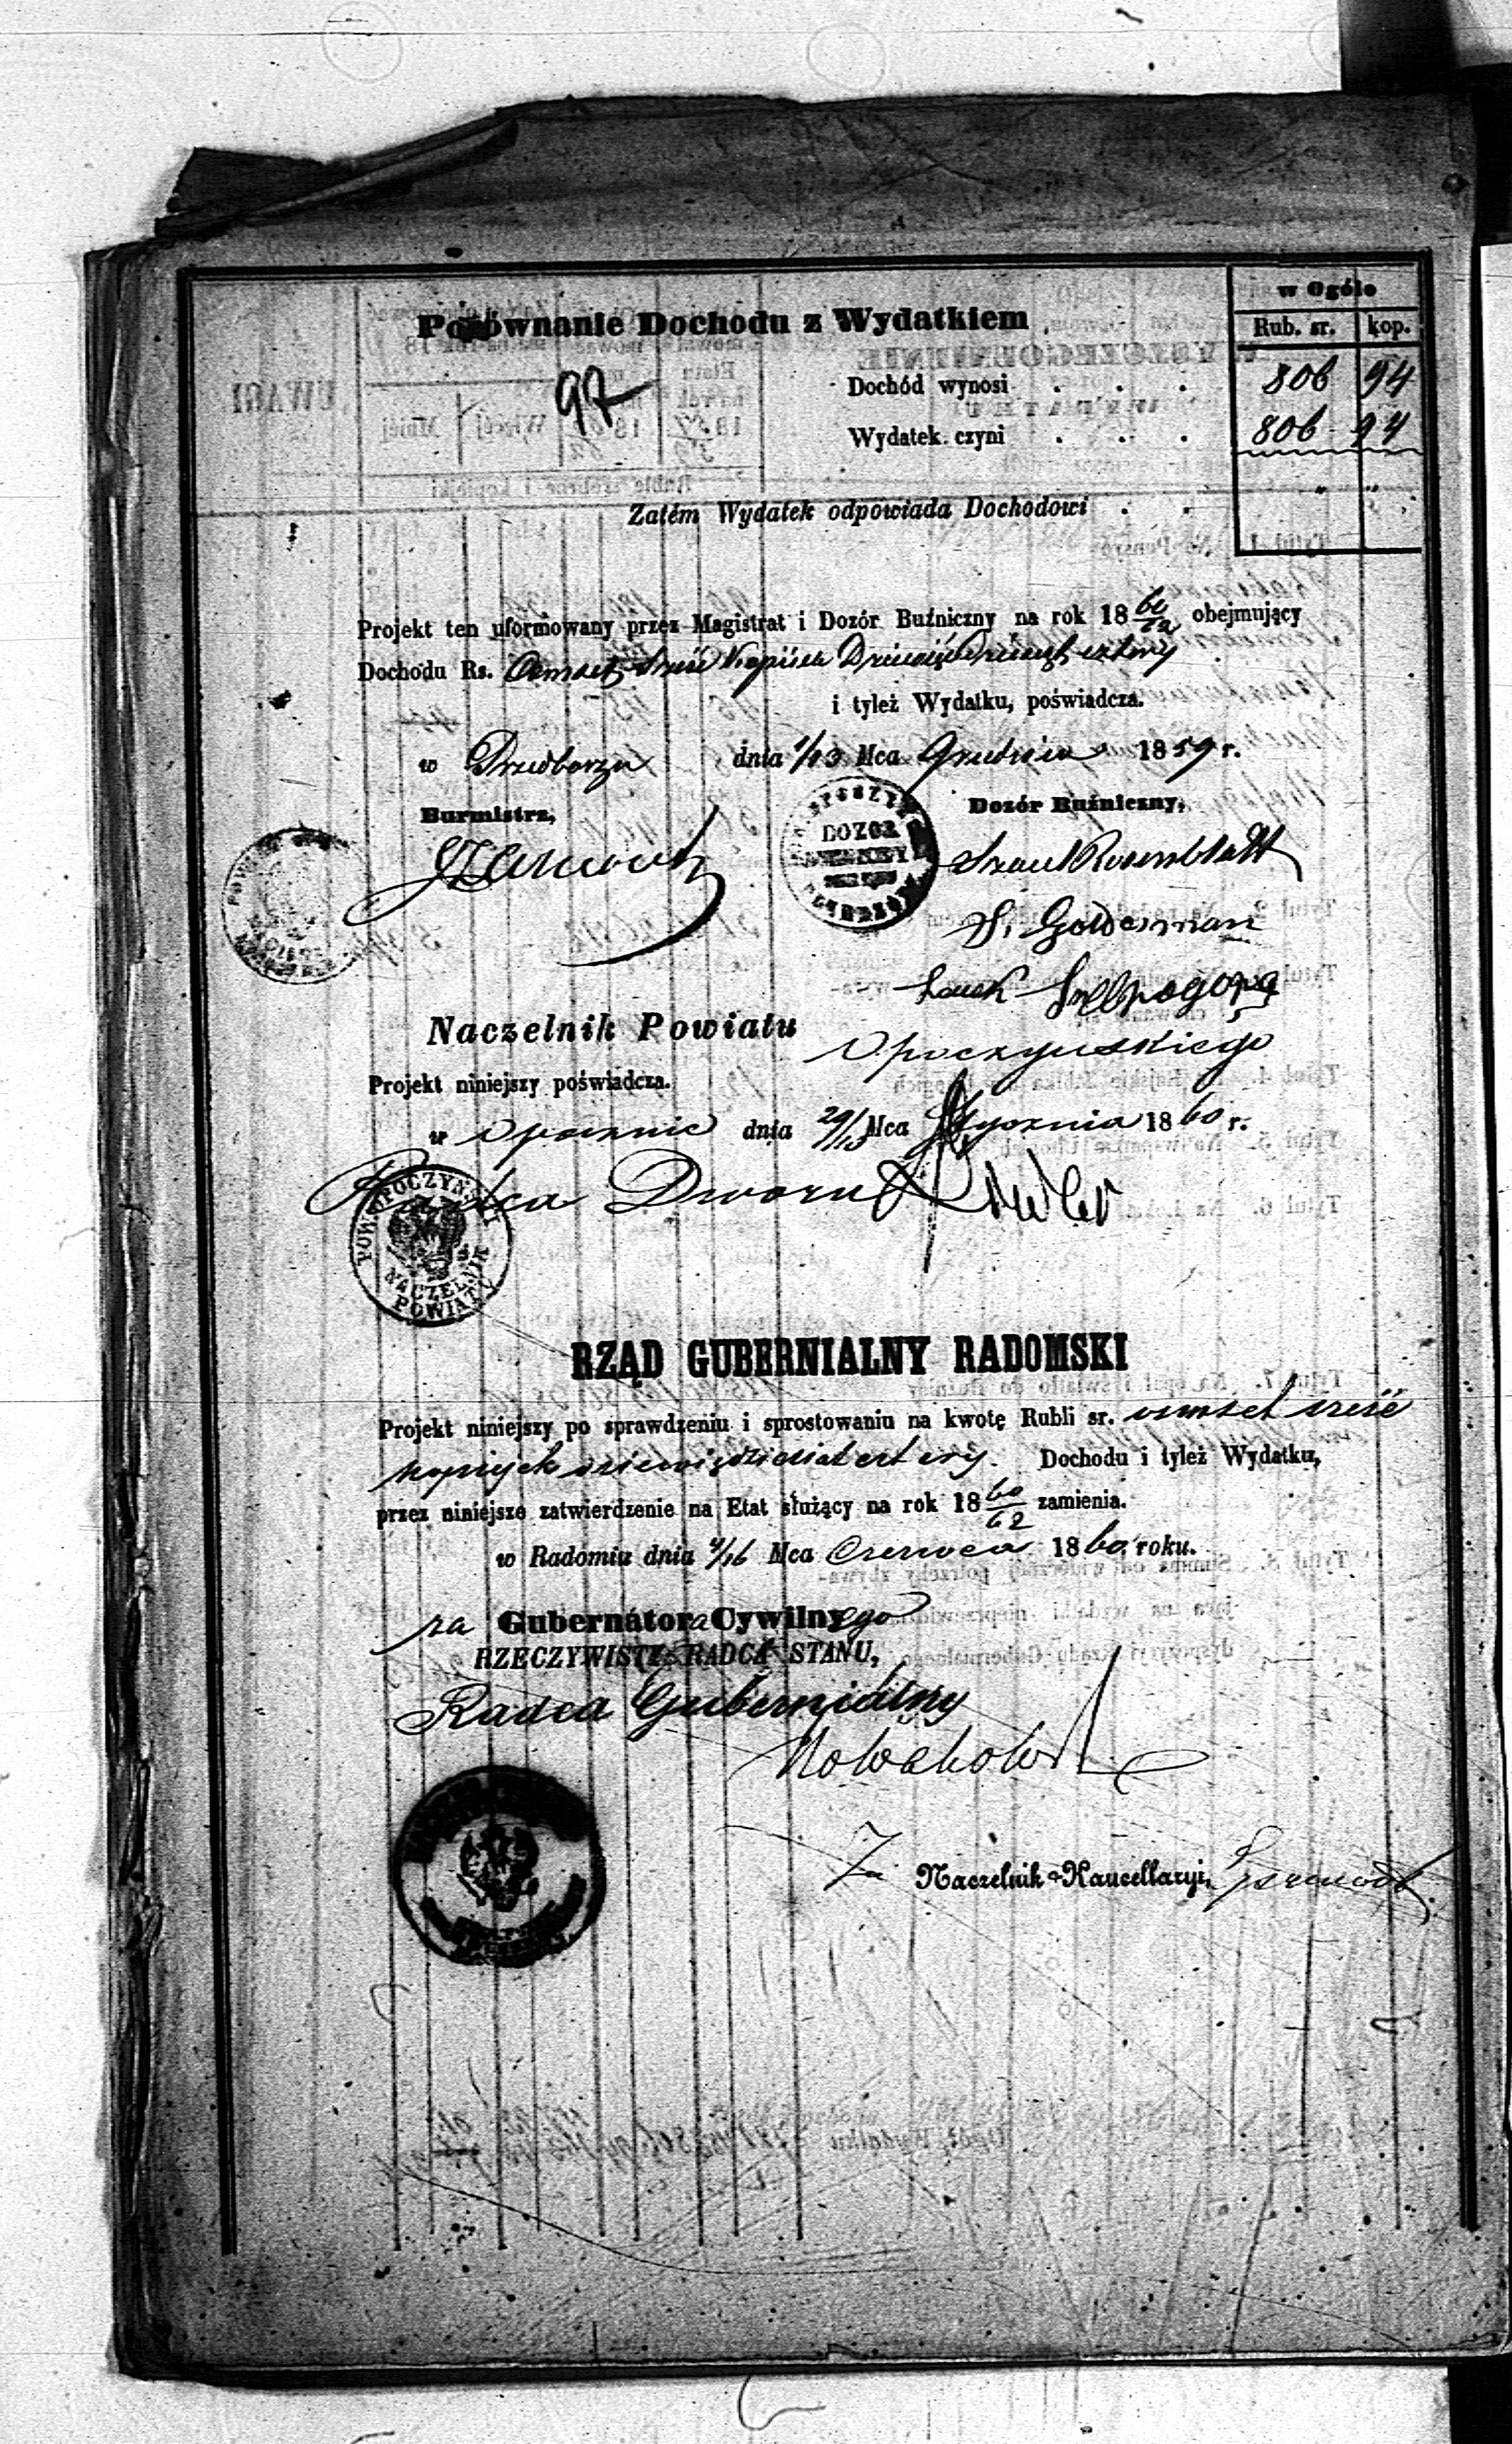 w Ogóle
Porównanie Dochodu z Wydatkiem
Rub. sr. kop.
97
Dochód wynosi . . . 806 94
Wydatek czyni . . . 806 94
Zatém Wydatek odpowiada Dochodowi . . " "
Projekt ten uformowany przez Magistrat i Dozór Buźniczny na rok 18 60/62 obejmujący
Dochodu Rs. Osmset sześć Kopiiek Dziewięćdziesiąt cztery
i tyleż Wydatku, poświadcza.
w Przedborzu dnia 1/13 Mca Grudnia 1859 r.
Burmistrz, Dozór Buźniczny,
DOZOR
Rosenblatt
S. Goldesman
Naczelnik Powiatu Opoczyńskiego
Projekt niniejszy poświadcza.
w Opocznie dnia Mca Stycznia 1860 r.
Radca Dworu
POW. OPOCZYŃ
NACZELNIK
POWIATU
RZĄD GUBERNIALNY RADOMSKI
Projekt niniejszy po sprawdzeniu i sprostowaniu na kwotę Rubli sr. osmset sześć
kopiejek dziewięćdziesiąt cztery. Dochodu i tyleż Wydatku,
przez niniejsze zatwierdzenie na Etat służący na rok 18 60/62 zamienia.
w Radomiu dnia 4/16 Mca Czerwca 1860 roku.
za Gubernatora Cywilnego
RZECZYWISTY RADCA STANU,
Radca Gubernialny
Za Naczelnik Kancellaryi,